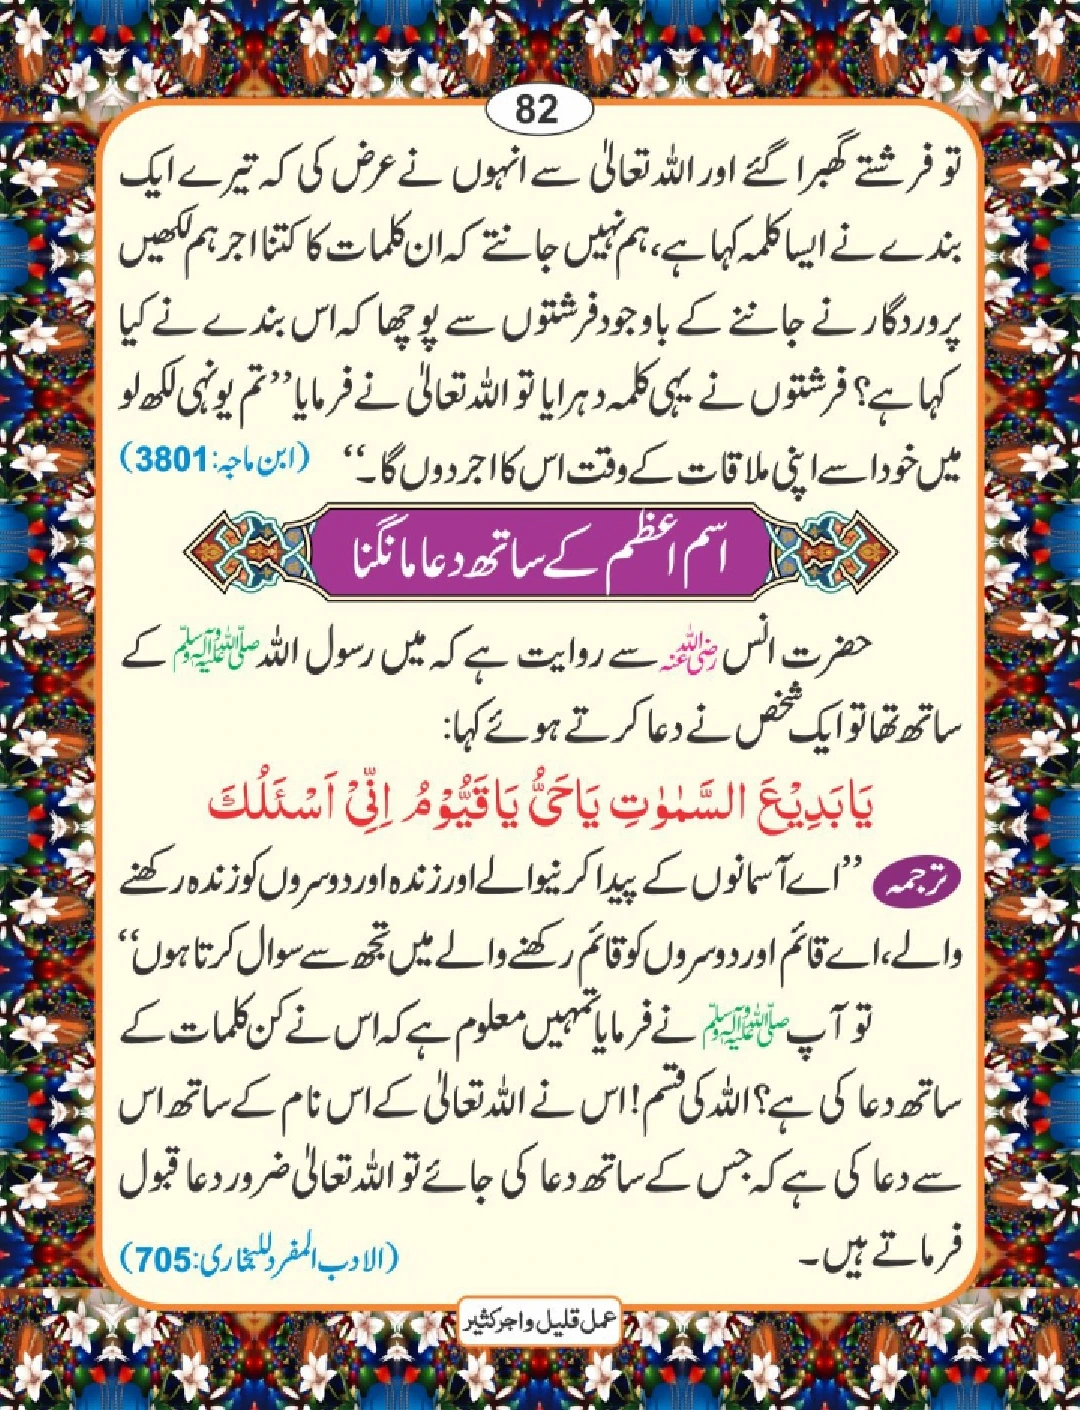 82
تو فرشتے گھبرا گئے اور اللہ تعالیٰ سے انہوں نے عرض کی کہ تیرے ایک
بندے نے ایسا کلمہ کہا ہے، ہم نہیں جانتے کہ ان کلمات کا کتنا اجر ہم لکھیں
پروردگار نے جاننے کے باوجود فرشتوں سے پوچھا کہ اس بندے نے کیا
کہا ہے؟ فرشتوں نے یہی کلمہ دہرایا تو اللہ تعالیٰ نے فرمایا ’’تم یونہی لکھ لو
میں خود اسے اپنی ملاقات کے وقت اس کا اجر دوں گا۔‘‘ (ابن ماجہ:3801)
اسم اعظم کے ساتھ دعا مانگنا
حضرت انس رضی اللہ عنہ سے روایت ہے کہ میں رسول اللہ صلی اللہ علیہ وآلہ وسلم کے
ساتھ تھا تو ایک شخص نے دعا کرتے ہوئے کہا:
يَا بَدِيْعَ السَّمٰوٰتِ يَاحَيُّ يَاقَيُّوْمُ اِنِّيْ اَسْئَلُكَ
ترجمہ ’’اے آسمانوں کے پیدا کرنیوالے اور زندہ اور دوسروں کو زندہ رکھنے
والے، اے قائم اور دوسروں کو قائم رکھنے والے میں تجھ سے سوال کرتا ہوں‘‘
تو آپ صلی اللہ علیہ وآلہ وسلم نے فرمایا تمہیں معلوم ہے کہ اس نے کن کلمات کے
ساتھ دعا کی ہے؟ اللہ کی قسم! اس نے اللہ تعالیٰ کے اس نام کے ساتھ اس
سے دعا کی ہے کہ جس کے ساتھ دعا کی جائے تو اللہ تعالیٰ ضرور دعا قبول
فرماتے ہیں۔ (الادب المفرد للبخاری:705)
عمل قلیل و اجر کثیر